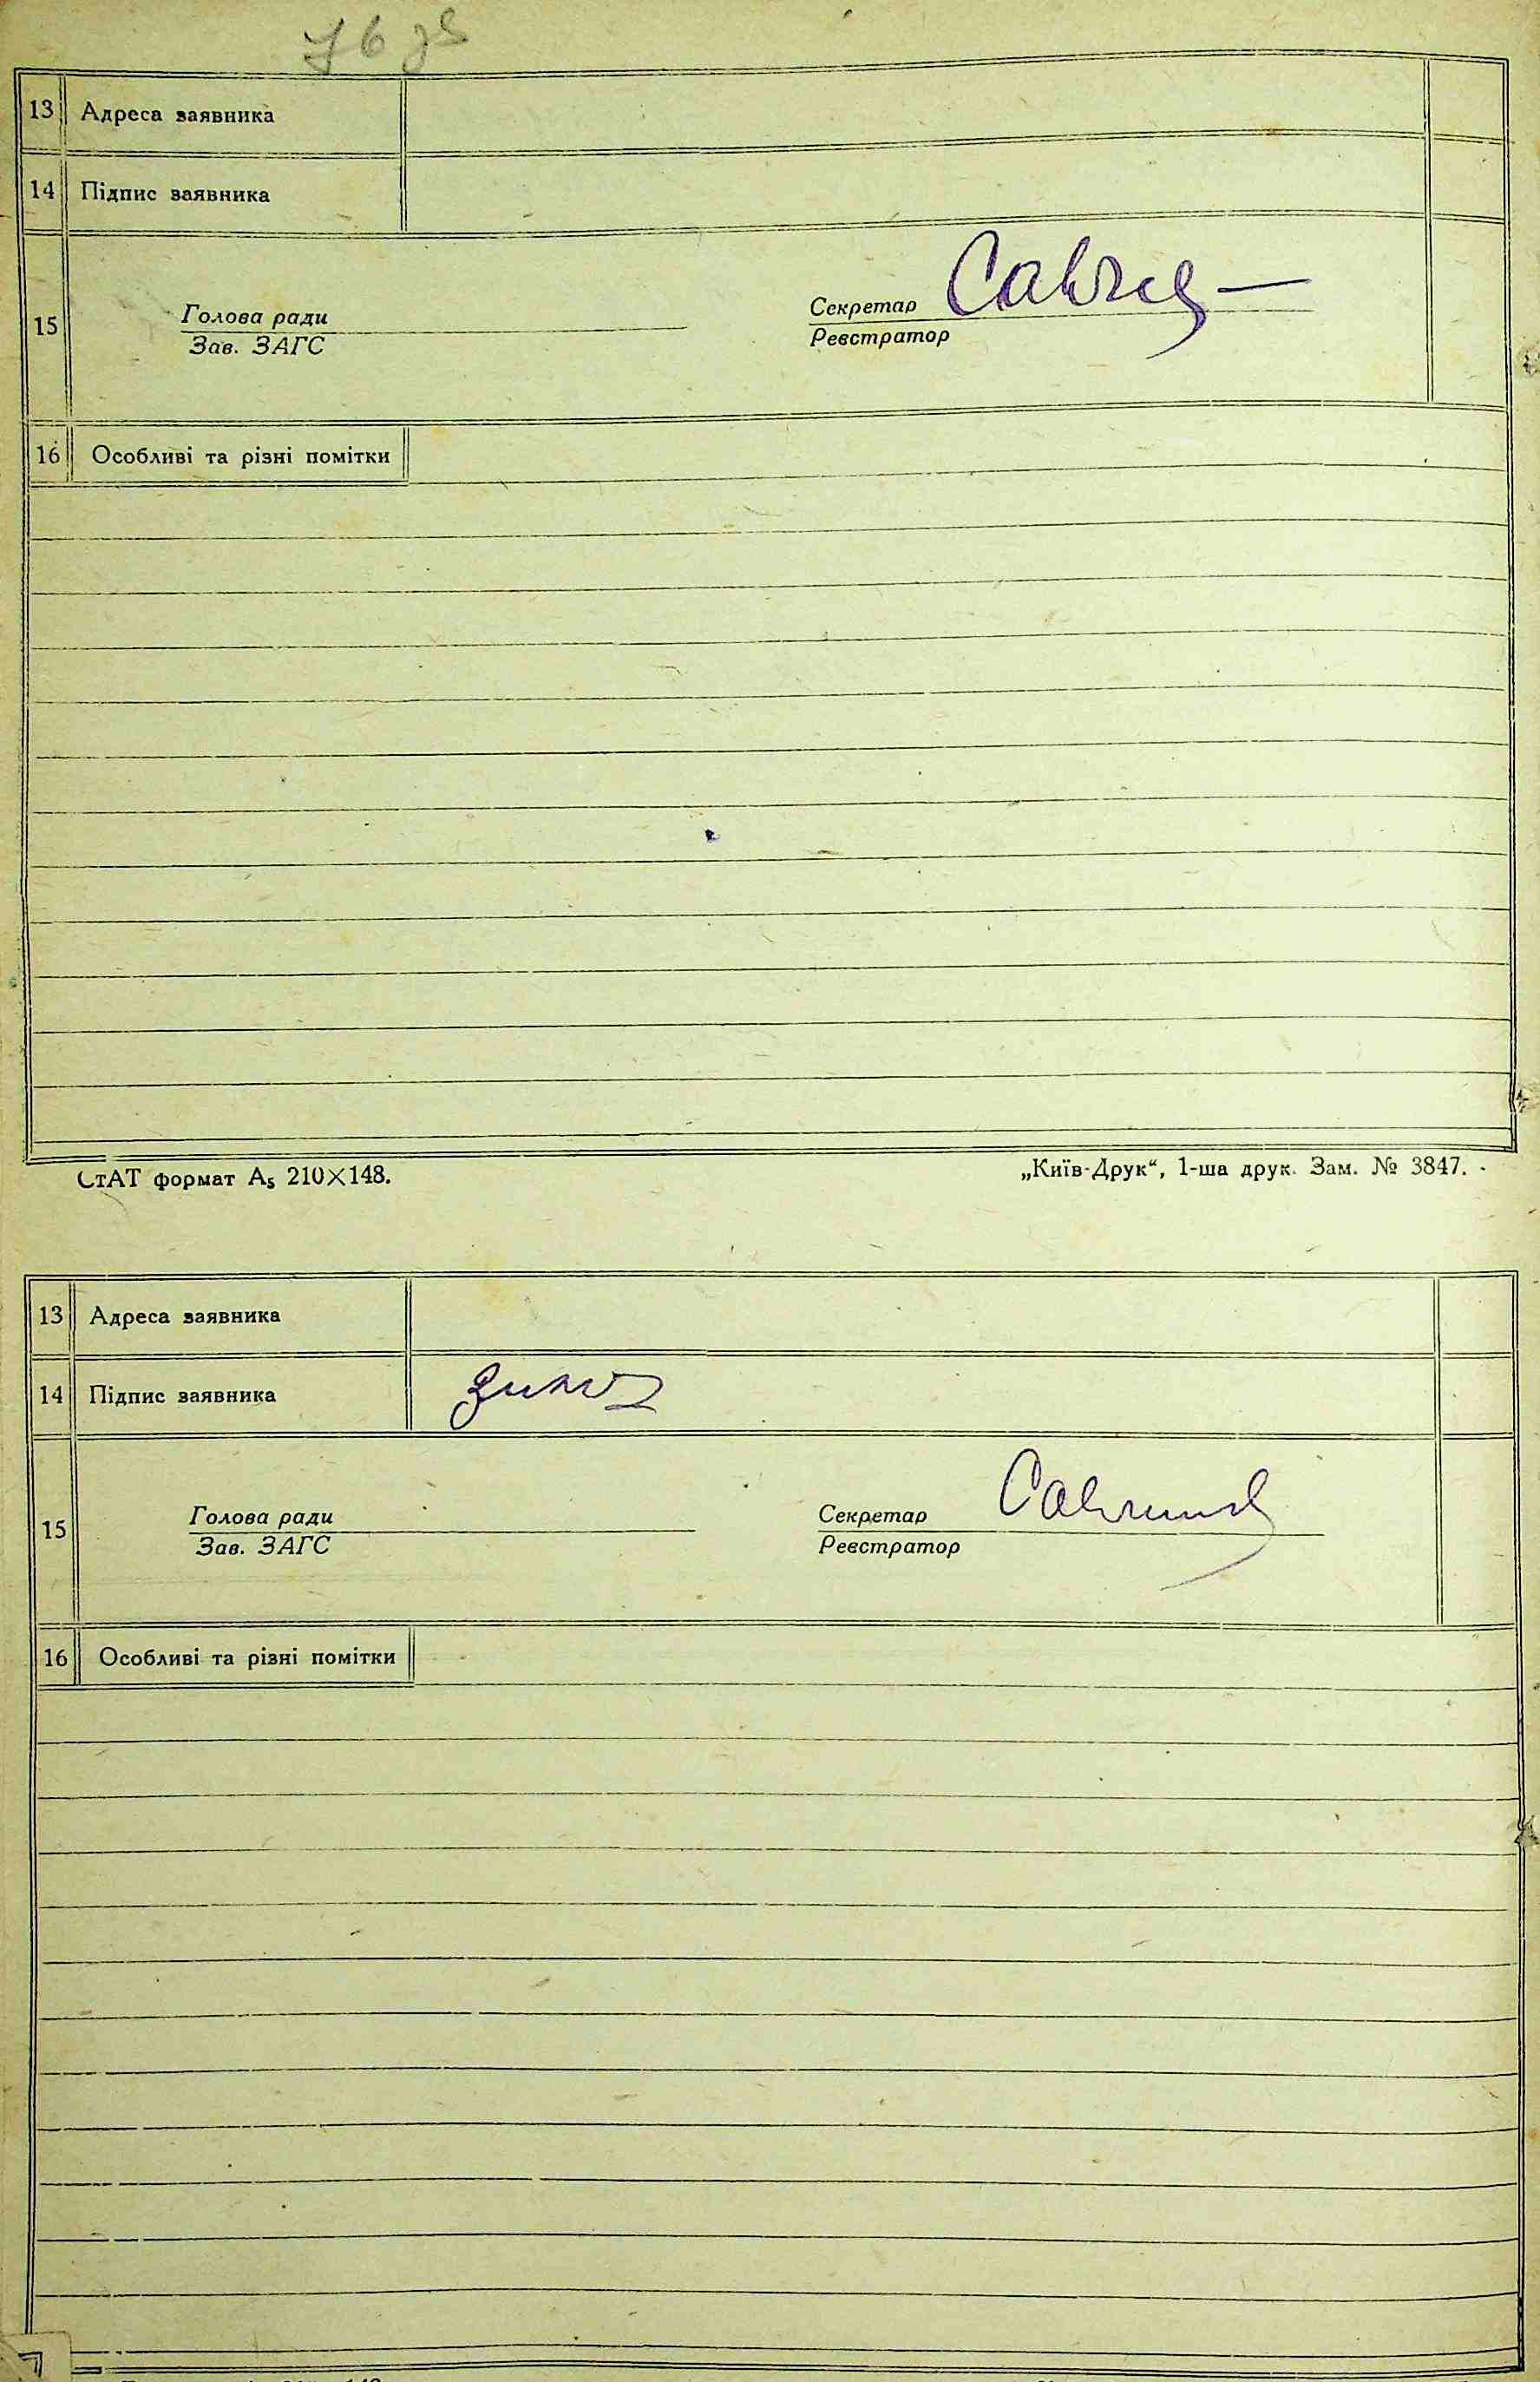 76 зв
13 Адреса заявника
14 Підпис заявника
15 Голова ради Секретар
Зав. ЗАГС Реєстратор
16 Особливі та різні помітки
СтАТ формат А₅ 210×148. „Київ-Друк“, 1-ша друк. Зам. № 3847.
13 Адреса заявника
14 Підпис заявника
15 Голова ради Секретар
Зав. ЗАГС Реєстратор
16 Особливі та різні помітки